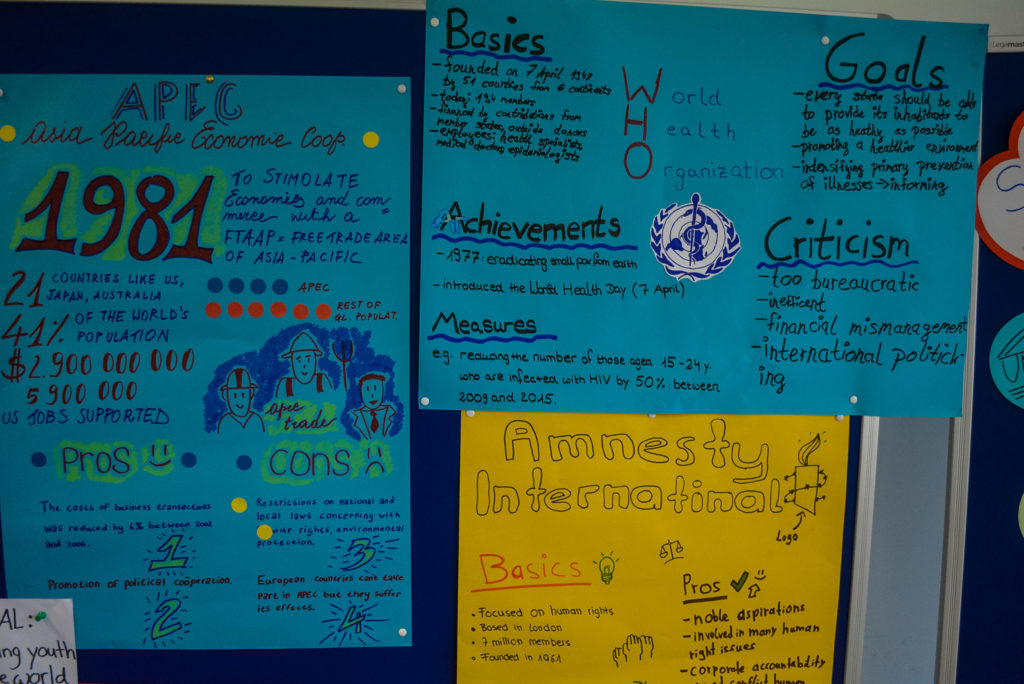 APEC
Asia Pacific Economic Coop.
1981
TO STIMOLATE
Economies and com
merce with a
FTAAP = FREE TRADE AREA
OF ASIA-PACIFIC
21 COUNTRIES LIKE US,
JAPAN, AUSTRALIA
41% OF THE WORLD'S
POPULATION
$2.900 000 000
5 900 000
US JOBS SUPPORTED
APEC
REST OF
GL. POPULAT.
apec
trade
PROS
CONS
The costs of business transactions
was reduced by 6% between 2002
and 2006.
1
Promotion of political coöperation.
2
Restrictions on national and
local laws concerning with
our rights, environmental
protection.
3
European countries can't take
part in APEC but they suffer
its effects.
4
AL:
ng youth
e world
Basics
- founded on 7 April 1948
by 51 countries from 6 continents
- today: 194 members
- financed by contributions from
member states, outside donors
- employees: health specialists,
medical doctors, epidemiologists
World
Health
Organization
Goals
- every state should be able
to provide its inhabitants to
be as heathy as possible
- promoting a healthier environment
- indensifying primary prevention
of illnesses → informing
Achievements
- 1977: eradicating small pox from earth
- introduced the World Health Day (7 April)
Measures
e.g. reducing the number of those aged 15-24 y.
who are infected with HIV by 50% between
2009 and 2015.
Criticism
- too bureaucratic
- inefficent
- financial mismanagement
- international politick-
ing
Amnesty
Internatinal
Logo
Basics
• Focused on human rights
• Based in London
• 7 million members
• Founded in 1961
Pros
- noble aspirations
- involved in many human
right issues
- corporate accountability
conflict human
Legamast